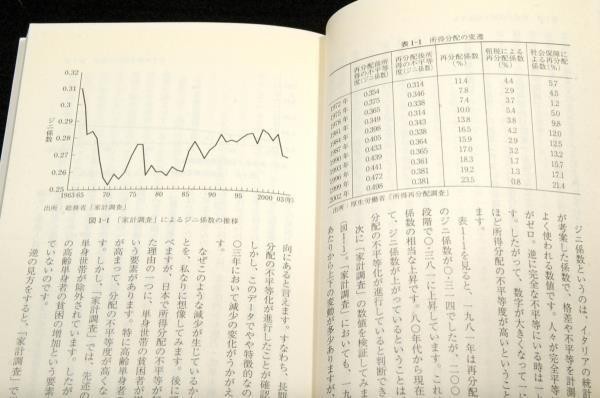 表1-1 所得分配の変遷
再分配前所得の不平等度(ジニ係数)
再分配後所得の不平等度(ジニ係数)
再分配係数(%)
租税による再分配係数(%)
社会保障による再分配係数(%)
1972年 0.354 0.314 11.4 4.4 5.7
1975年 0.375 0.346 7.8 2.9 4.5
1978年 0.365 0.338 7.4 3.7 1.2
1981年 0.349 0.314 10.0 5.4 5.0
1984年 0.398 0.343 13.8 3.8 9.8
1987年 0.405 0.338 16.5 4.2 12.0
1990年 0.433 0.364 15.9 2.9 12.5
1993年 0.439 0.365 17.0 3.2 13.2
1996年 0.441 0.361 18.3 1.2 15.7
1999年 0.472 0.381 19.2 1.3 17.1
2002年 0.498 0.381 23.5 0.8 21.4
出所:厚生労働省「所得再分配調査」
ジニ係数というのは、イタリアの統計
が考案した係数で、格差や不平等を計測
よく使われる数値です。人々が完全平等
がゼロ。逆に完全な不平等にいる時は一
す。したがって、数字が大きくなって「一
ほど所得分配の不平等度が高いということ
ます。
表1-1を見ると、一九八一年は再分配
のジニ係数が〇・三一四でしたが、二〇〇
段階で〇・三八一に上昇しています。これ
係数の相当な上昇です。八〇年代から現在
て、ジニ係数が上がっているということは
分配の不平等化が進行していると判断でき
次に「家計調査」の数値を検証してみま
(図1-1)。「家計調査」においても、一九
あたりから上下の変動が多少ありますが、
ジニ係数
0.32
0.31
0.3
0.29
0.28
0.27
0.26
0.25
1963 65 70 75 80 85 90 95 2000 03(年)
出所:総務省「家計調査」
図1-1 「家計調査」によるジニ係数の推移
向にあると言えます。すなわち、長期
分配の不平等化が進行したことが確認
しかし、このデータでやや特徴的なの
〇三年において減少の変化がうかがえ
す。
なぜこのような減少が生じているか
とを、私なりに想像してみます。後に
べますが、日本で所得分配の不平等が
た理由の一つに、単身世帯の貧困者が
いう要素があります。特に高齢単身者
が高まって、分配の不平等度が高くな
す。しかし、「家計調査」では、先述の
単身世帯が除外されています。したが
の高齢単身者の貧困の増加という要素
ていないのです。
逆の見方をすると、「家計調査」で